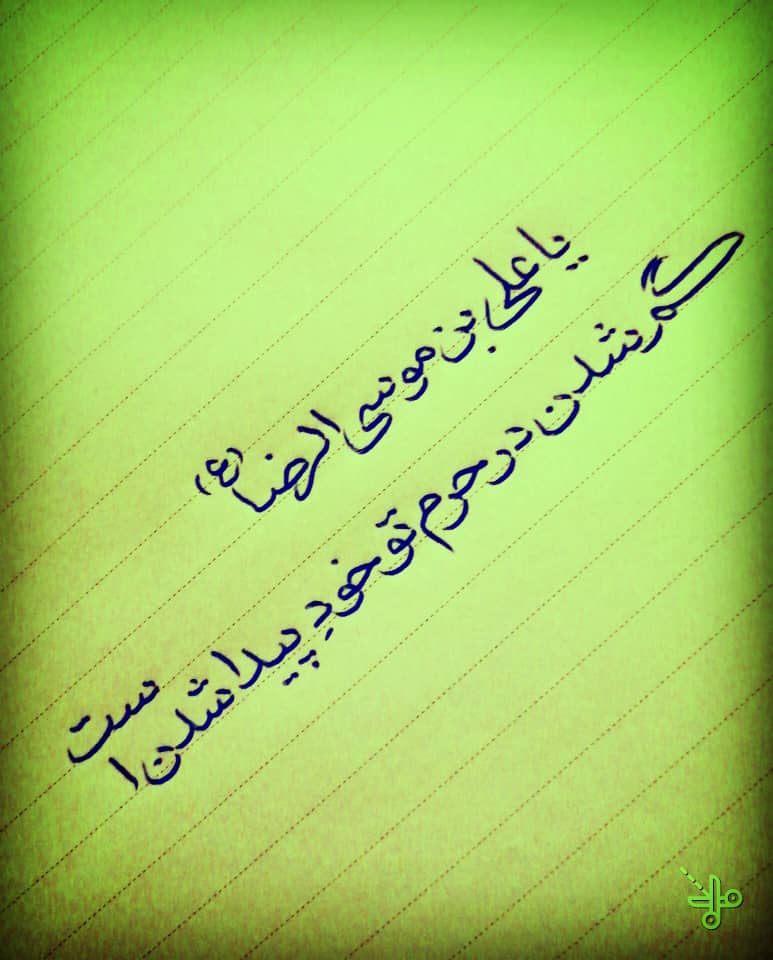 یا علی بن موسی الرضا (ع)
گم شدن در حرم تو خودِ پیدا شدن است